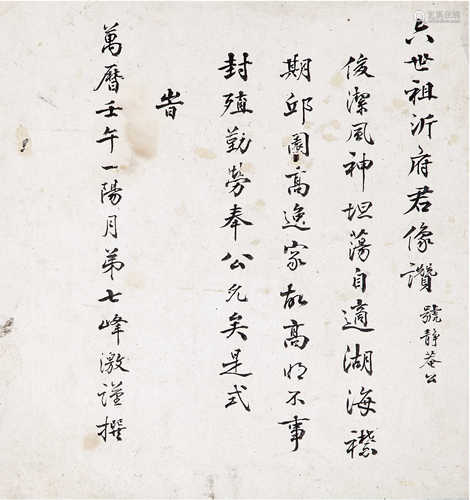 六世祖沂府君像讚 號靜菴公
俊潔風神坦蕩自適湖海襟
期邱園高逸家故高明不事
封殖勤勞奉公允矣是式
旹
萬曆壬午一陽月第七峰激謹撰